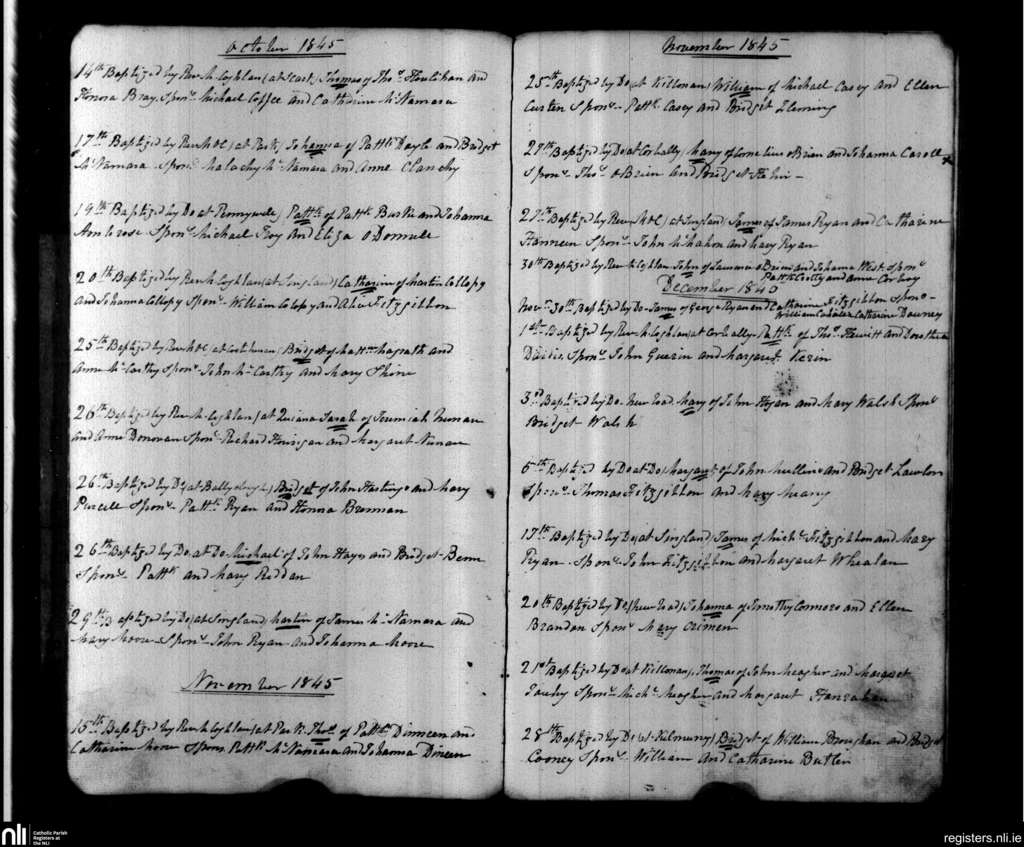 October 1845
14th Baptized by Rev M Loghlan (at Park) Thomas of Thos Houlihan and
Honora Bray. Spons Michael Coffee and Catharine McNamara
17th Baptized by Rev M at Park) Johanna of Pattk Doyle and Bridget
McNamara Spons Malachy McNamara and Anne Clanchy
19th Baptized by Do at Pennywell) Pattk of Pattk Burke and Johanna
Ambrose Spons Michael Foy and Eliza O Donnell
20th Baptized by Rev M Loghlan (at Singland) Catharine of Martin Collopy
and Johanna Collopy Spons William Collopy and Alice Fitzgibbon
25th Baptized by Rev M at Bridget of Magrath and
Anne McCarthy Spons John McCarthy and Mary Shine
26th Baptized by Rev M Loghlan) at Sarah of Jeremiah Noonan
and Anne Donovan Spons Richard and Margaret Nunan
26th Baptized by Do (at Ballysheedy) Bridget of John Hastings and Mary
Purcell Spons Pattk Ryan and Honora Brennan
26th Baptized by Do. at Do Michael of John Hayes and Bridget
Spons Pattk and Mary Reddan
29th Baptized by Do (at Singland) Martin of James McNamara and
Mary Moore Spons John Ryan and Johanna Moore
November 1845
15th Baptized by Rev M Loghlan (at Park Thos of Pattk Dinneen and
Catharine Moore Spons Pattk McNamara and Johanna Dineen
November 1845
25th Baptized by Do (at Killonan) William of Michael Casey and Ellen
Curtin Spons Pattk Casey and Bridget Fleming
27th Baptized by Do at Corbally) Mary of Cornelius O Brien and Johanna Caroll
Spons Thos O Brien and Bridget
27th Baptized by Rev M at Singland) James of James Ryan and Catharine
Hanneen Spons John McMahon and Mary Ryan
30th Baptized by Rev M Loghlan John of Laurence O Brien and Johanna West Spons
Pattk Crotty and Anne Corboy
December 1845
Novr 30th Baptized by Do James of George Ryan and Catharine Fitzgibbon Spons
William Catharine Downey
1st Baptized by Rev M Loghlan (at Corbally Pattk of Thos Hewitt and Dorothea
Davis Spons John Guerin and Margaret Kerin
3rd Baptized by Do. New Road Mary of John Hogan and Mary Walsh Spons
Bridget Walsh
5th Baptized by Do at Do, Margaret of John Mullins and Bridget Lawlor
Spons Thomas Fitzgibbon and Mary Meany
17th Baptized by Do, at Singland) James of Michl Fitzgibbon and Mary
Ryan Spons John Fitzgibbon and Margaret Whealan
20th Baptized by Do (New Road) Johanna of Timothy Connors and Ellen
Brandon Spons Mary Crimen
21st Baptized by Do at Killonan) Thomas of John Meagher and Margaret
Spons Michl Meagher and Margaret Hanrahan
28th Baptized by Do (at Kilmurry) Bridget of William Broughan and Bridget
Cooney Spons William and Catharine Butler
nli
Catholic Parish
Registers at
the NLI
registers.nli.ie